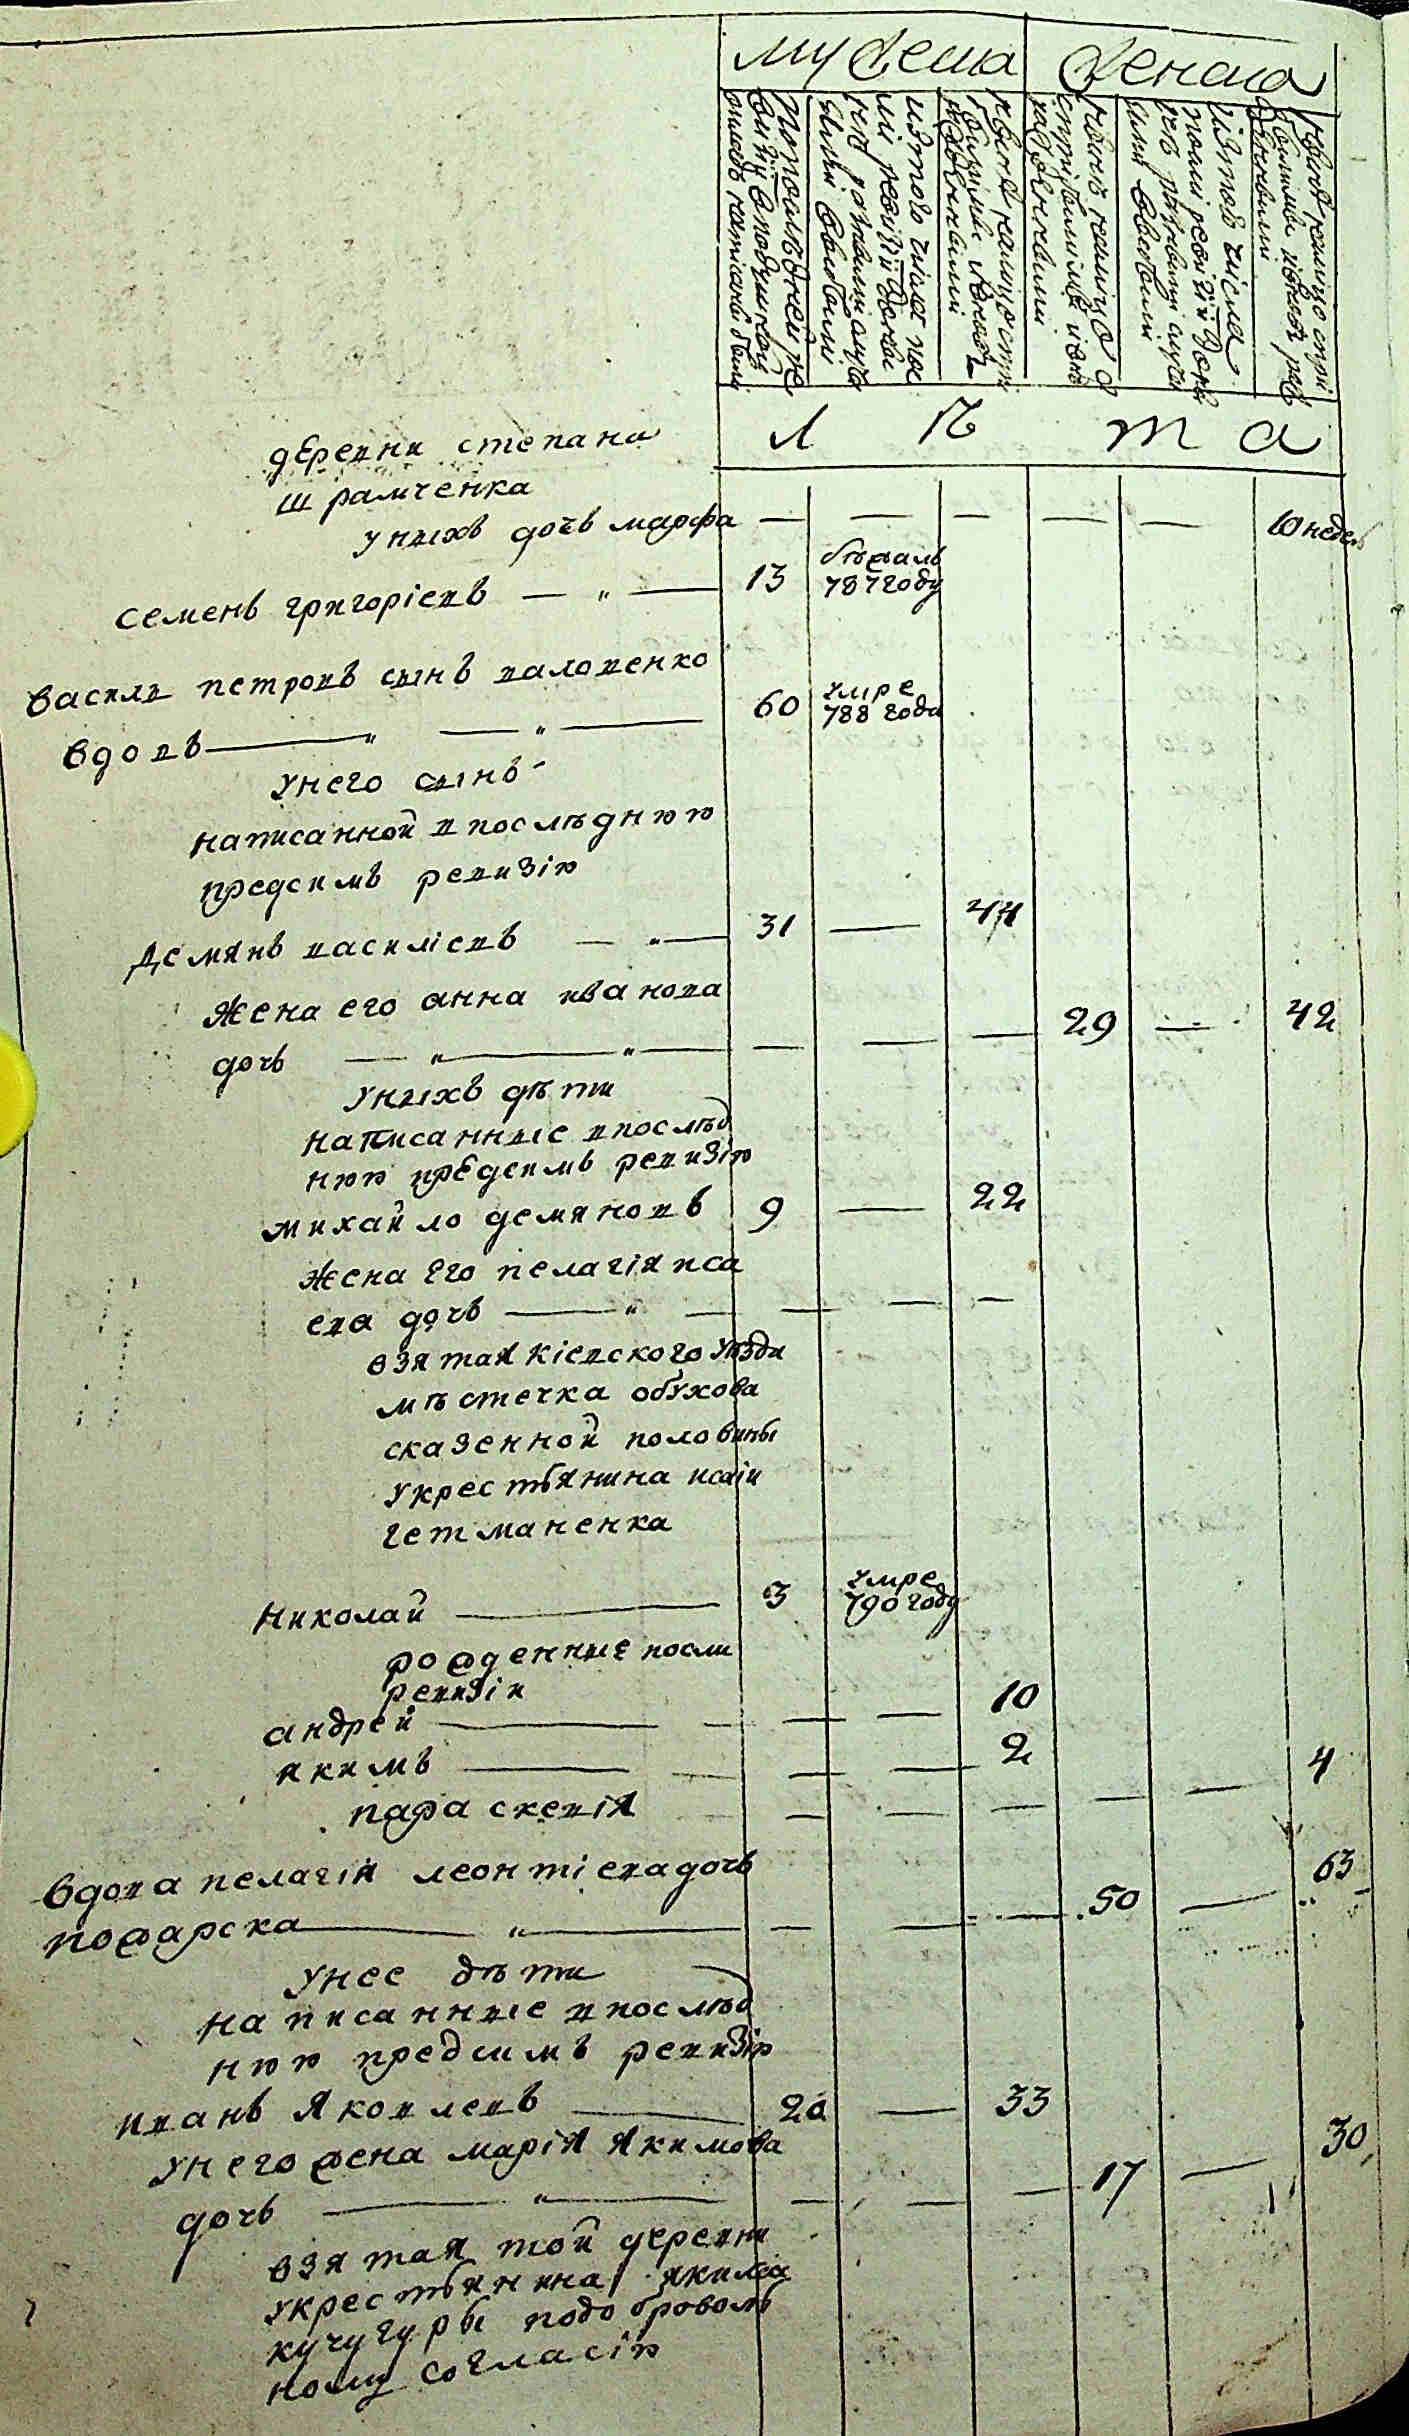 мужеска женска
По последней ре
визіи в подушной
окладъ написаны были
изъ того числа пос
ли ревизіи
разными случа
ями выбыли
изъ того числа
посли ревизіи
разными случа
ями выбыли
лѣта
деревни степана
шрамченка
унихъ дочь марфа — — — — — 10 недель
семенъ григоріевъ — „ — 13 бѣжалъ 787 году
василь петровъ сынъ паложенко
вдовъ — „ — „ — 60 умре 788 года
унего сынъ
написанной в последнюю
предсимъ ревизію
Демянъ василіевъ — „ — 31 — 44
Жена его анна иванова
дочь — „ — „ — — — — 29 — 42
унихъ дѣти
написанные впослѣд
нюю предсимъ ревизію
михайло демяновъ 9 — 22
жена его пелагія иса
ева дочь — „ — — — —
взятая кіевского уезда
мѣстечка обухова
сказенной половины
укрестьянина исаіи
гетманенка
Николай — 3 умре 790 году
рожденные посли
ревизіи
андрей — — — — 10
якимъ — — — — 2
параскевія — — — — — — 4
вдова пелагія леонтіева дочь
пожарска — „ — — — — 50 — 63
унее дѣти
написанные впослѣд
нюю предсимъ ревизію
иванъ Яковлевъ — 20 — 33
унего жена марія Якимова
дочь — „ — — — — 17 — 30
взятая той деревни
укрестьянина якима
кучугуры подоброволь
ному согласію